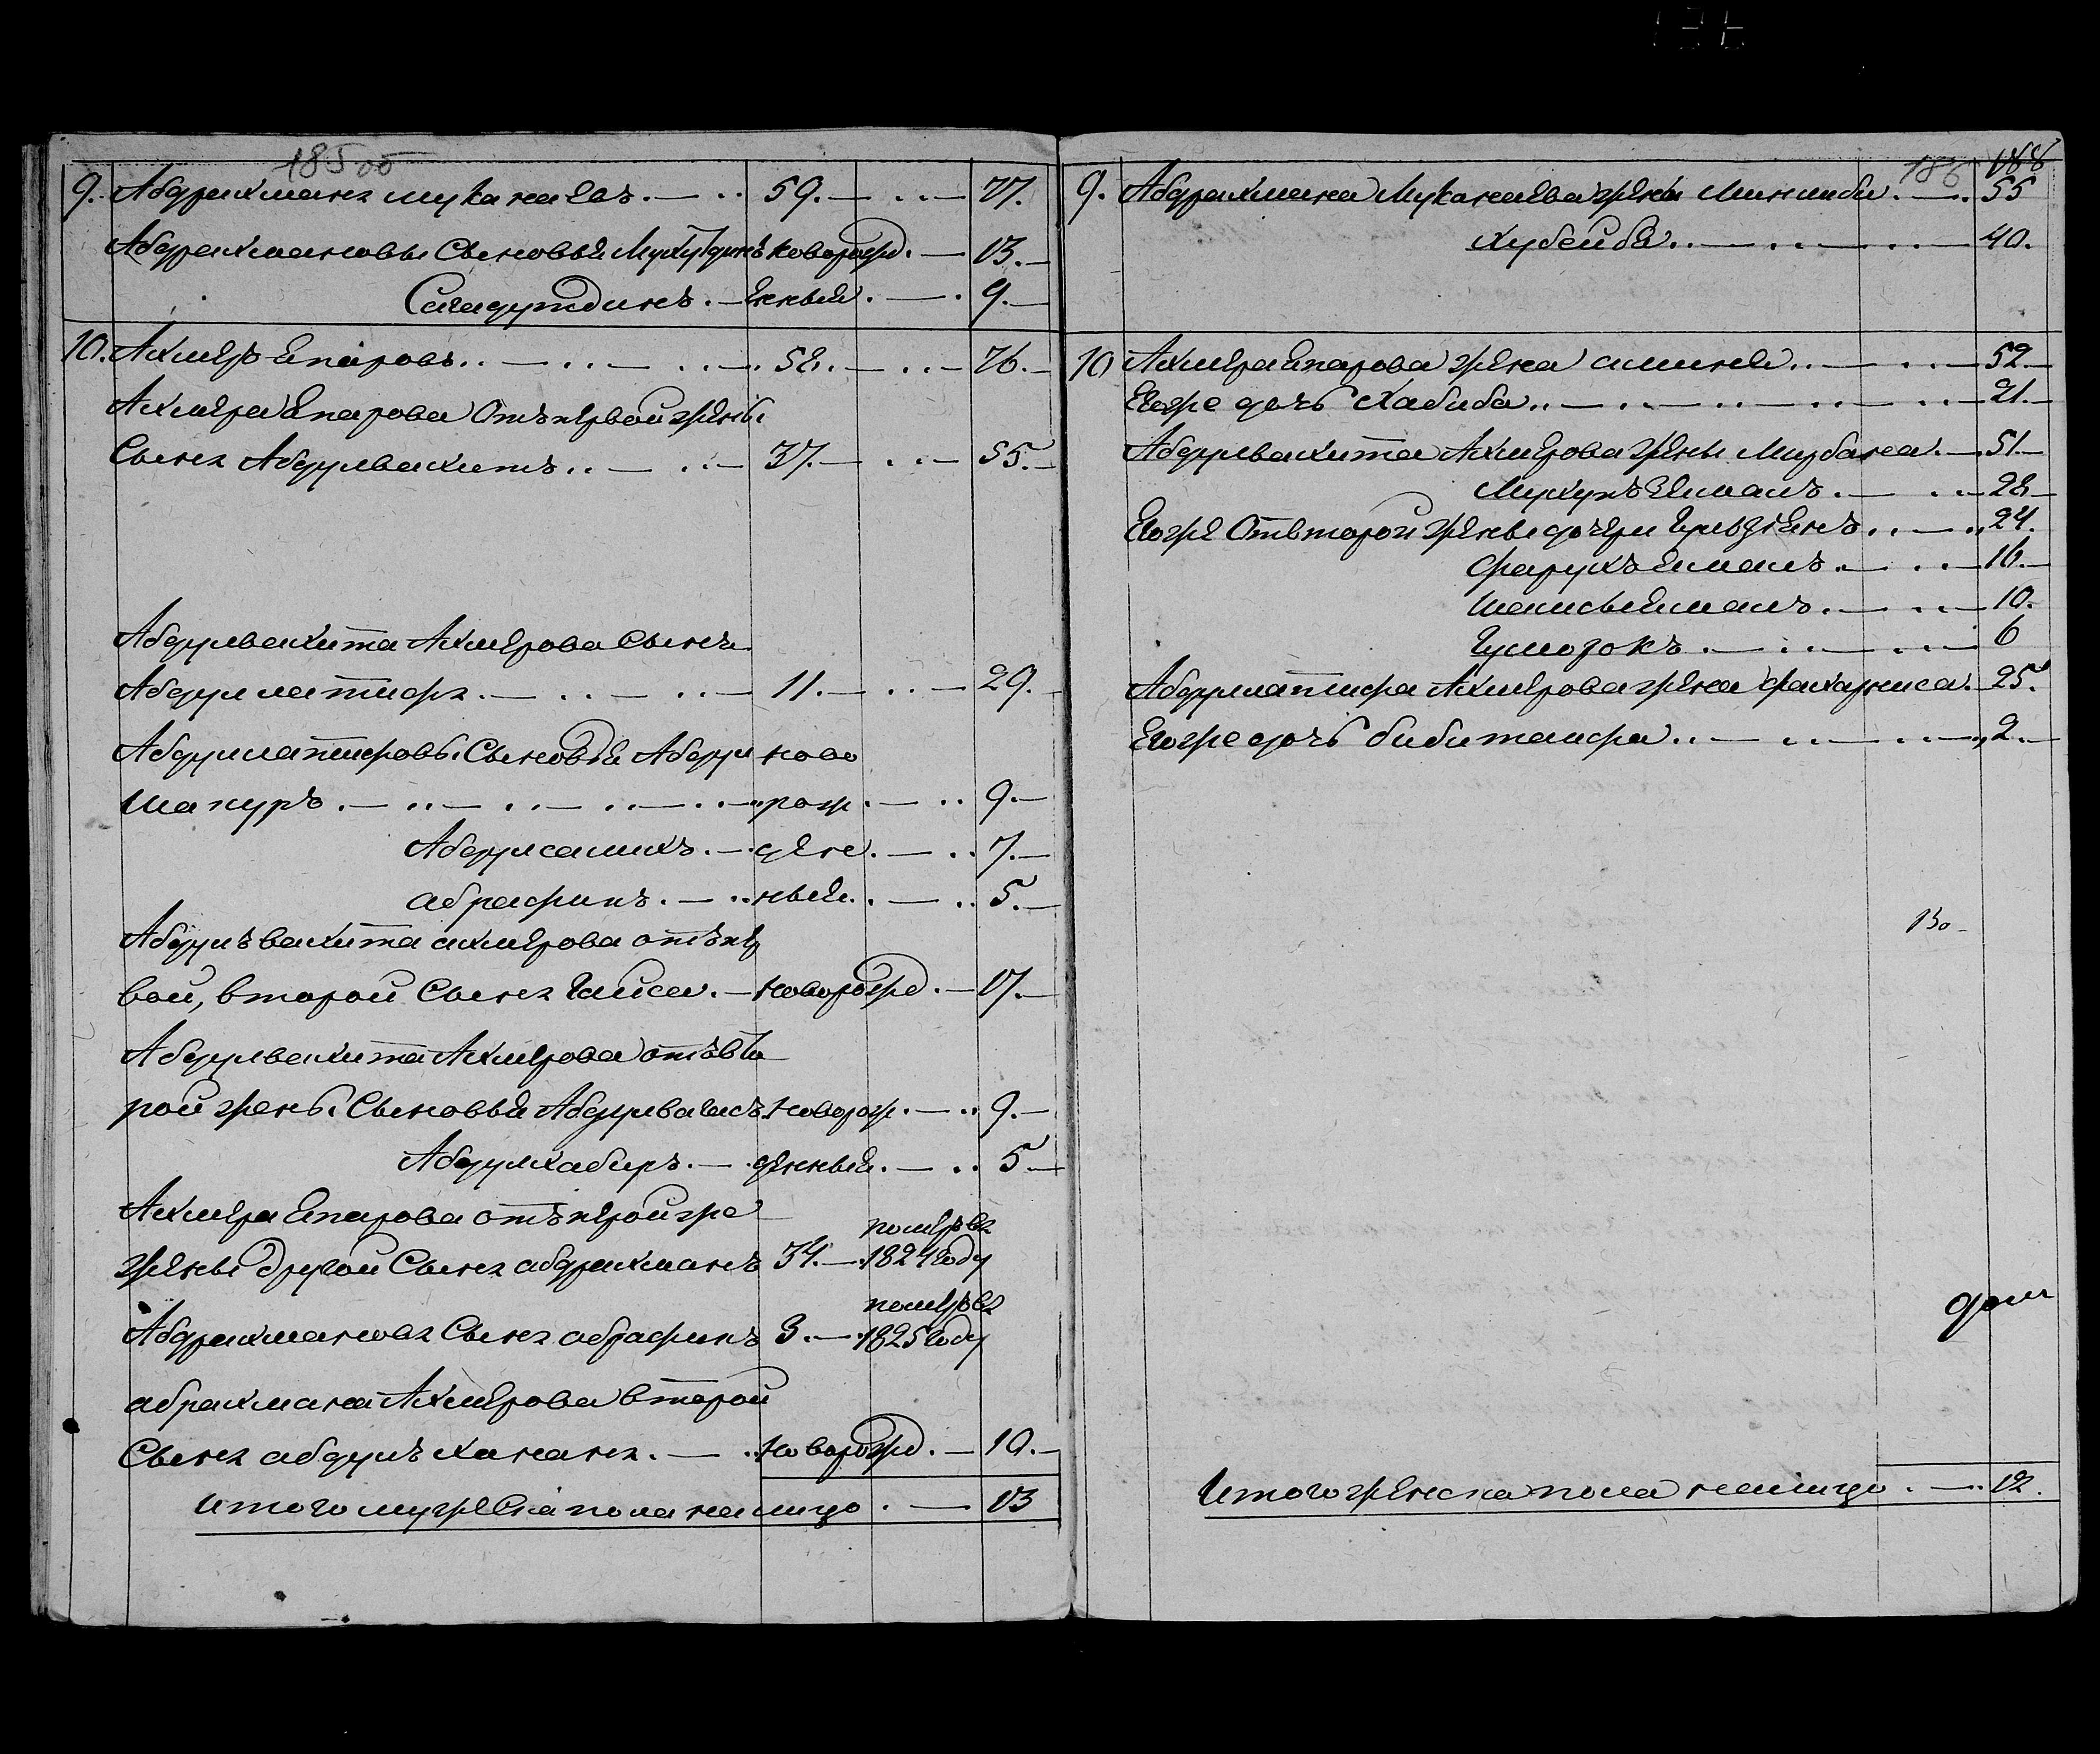 185 об
9. Абдрахманъ Муканаевъ. 59. 77.
Абдрахмановы Сыновья Мухутдинъ новорожд. 13.
Сагадутдинъ. енныя. 9.
10. Ахмеръ Епаровъ. 58. 76.
Ахмера Епарова Отъ первой жены
Сынъ Абдулвахитъ. 37. 55.
Абдулвахита Ахмерова Сынъ
Абдуллатифъ. 11. 29.
Абдуллатифовы Сыновья Абдул ново
шапуръ. рож. 9.
Абдулсалихъ. ден. 7.
абрафикъ. ныя. 5.
Абдулъвахита ахмерова отъ пер
вой, второй Сынъ Гайса. новорожд. 17.
Абдулвахита Ахмерова отъ вто
рой жены Сыновья Абдулвагисъ новорож. 9.
Абдулхабиръ. денныя. 5
Ахмера Епарова отъ первой же
жены другой Сынъ абдрахманъ 34. померъ въ 1824 году
Абдрахмановъ Сынъ абрафикъ 3. померъ въ 1825 году
абрахмана Ахмерова второй
Сынъ абдулъ хананъ. новорожд. 10.
Итого мужеска пола налицо. 13
186 188
9. Абдрахмана Муканаева жены Минлиби. 55
хубейба. 40.
10 Ахмера Епарова жена амина. 52.
Егоже дочь Хабиба. 21.
Абдулвахита Ахмерова жены Мирбана. 51.
Мухупъ Емалъ. 28
Егоже От второй жены дочери Гульзiенъ. 24.
Фарухъ Емалъ. 16.
Шамсыемалъ. 10.
Гулюзокъ. 6
Абдуллатифа Ахмерова жена фахарниса. 25.
Егоже дочь бибитаифа. 2.
130
Итого женска пола налицо. 12.